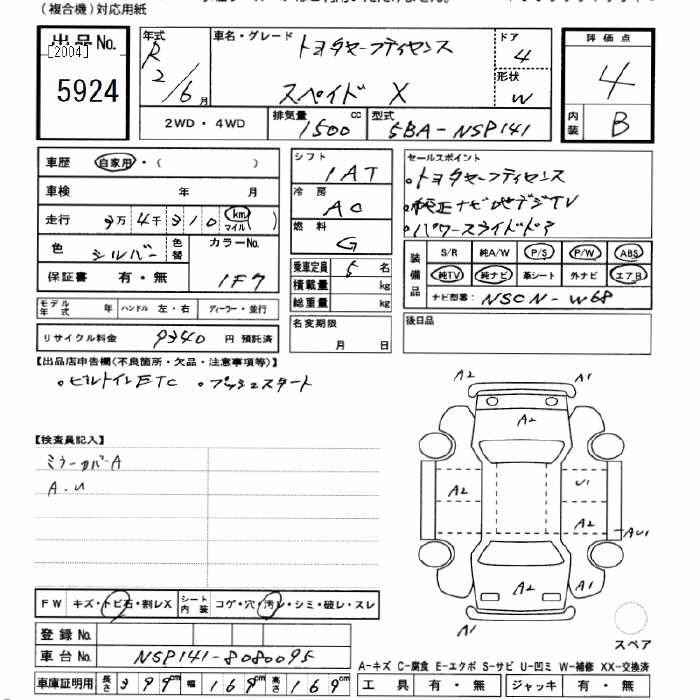 (複合機)対応用紙
出品No. [2004] 5924
年式 R2/6月
車名・グレード トヨタセーフティセンス
スペイド X
ドア 4
形状 W
評価点 4
内装 B
2WD・4WD
排気量 1500 cc
型式 5BA-NSP141
車歴 自家用・( )
車検 年 月
走行 3万4千310 km マイル
色 シルバー 色替 カラーNo. 1F7
保証書 有・無
モデル年式 年 ハンドル 左・右 ディーラー・並行
リサイクル料金 9340 円 預託済
シフト 1AT
冷房 AC
燃料 G
乗車定員 5 名
積載量 kg
総重量 kg
名変期限 月 日
セールスポイント
・トヨタセーフティセンス
・純正ナビ地デジTV
・パワースライドドア
装備品 S/R 純A/W P/S P/W ABS
純TV 純ナビ 革シート 外ナビ エアB
ナビ型番: NSCN-W68
後日品
【出品店申告欄(不良箇所・欠品・注意事項等)】
・ビルトインETC ・プッシュスタート
【検査員記入】
ミラーカバーA
A.U
A2 A1
A2
A2 U1
A2 AU1
A2 A1
A1
スペア
FW キズ・トビ石・割レX シート内装 コゲ・穴・汚レ・シミ・破レ・スレ
登録No.
車台No. NSP141-8080095
車庫証明用 長さ 399cm 幅 169cm 高さ 169cm
A-キズ C-腐食 E-エクボ S-サビ U-凹ミ W-補修 XX-交換済
工具 有・無 ジャッキ 有・無